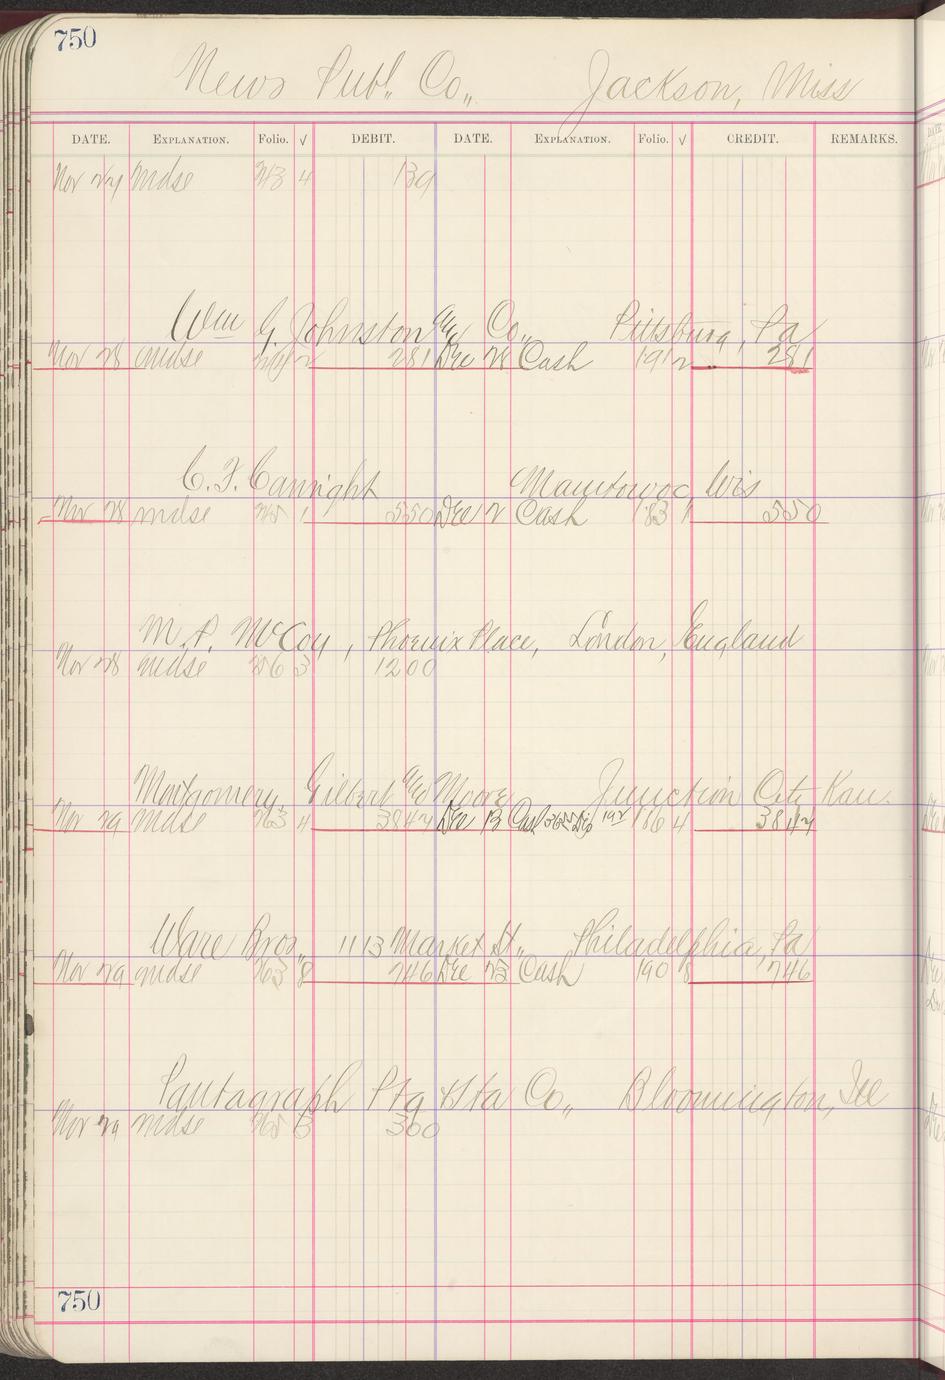 750
News Publ. Co., Jackson, Miss
DATE. EXPLANATION. Folio. √ DEBIT. DATE. EXPLANATION. Folio. √ CREDIT. REMARKS.
Nov 24 mdse 4 139
Wm G. Johnston & Co., Pittsburg, Pa
Nov 28 mdse 2 281 Dec 24 Cash 191 2 281
C. F. Canright Manitowoc, Wis
Nov 28 mdse 1 550 Dec 2 Cash 183 1 550
M. P. McCoy, Phoenix Place, London, England
Nov 28 mdse 256 3 1200
Montgomery, Gilbert & Moore Junction City Kan.
Nov 29 mdse 263 4 3844 Dec 13 Cash 3652 Dis 192 186 4 3844
Ware Bros., 1113 Market St., Philadelphia, Pa
Nov 29 mdse 263 8 746 Dec 23 Cash 190 8 746
Pantagraph Ptg & Sta Co., Bloomington, Ill
Nov 29 mdse 265 3 360
750